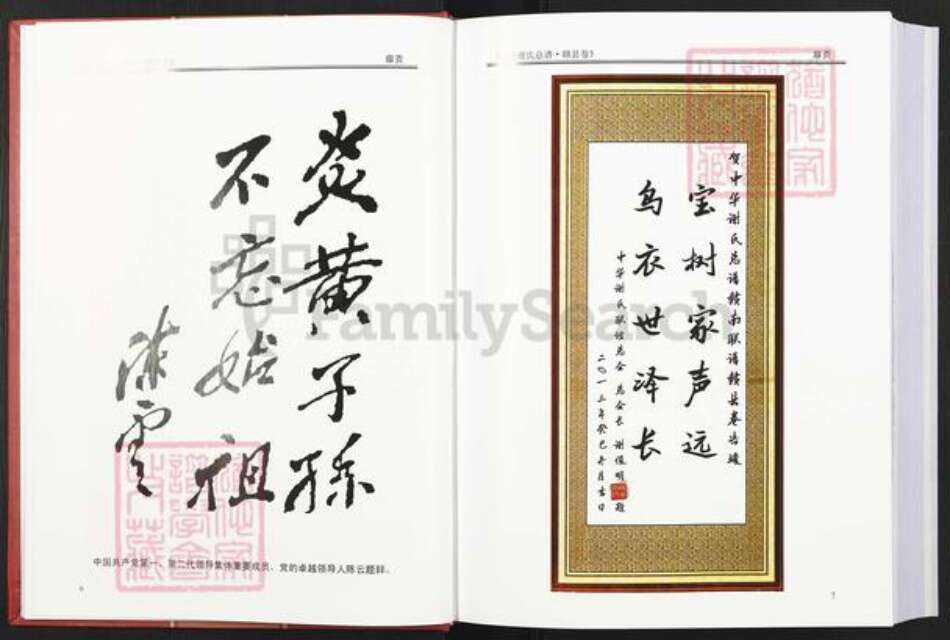 扉页
炎黄子孫
不忘始祖
陈云
中国共产党第一、第二代领导集体重要成员、党的卓越领导人陈云题辞。
6
氏总谱·赣县卷》
扉页
贺中华谢氏总谱赣南联谱赣县卷告竣
宝树家声远
乌衣世泽长
中华谢氏联谊总会 总会长 谢俊明 题
二〇一三年癸巳年月吉日
7
FamilySearch